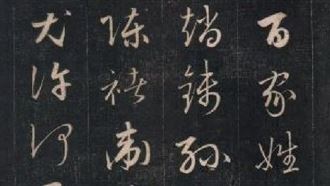 百家姓
趙錢孫
陳褚衛
尤許何